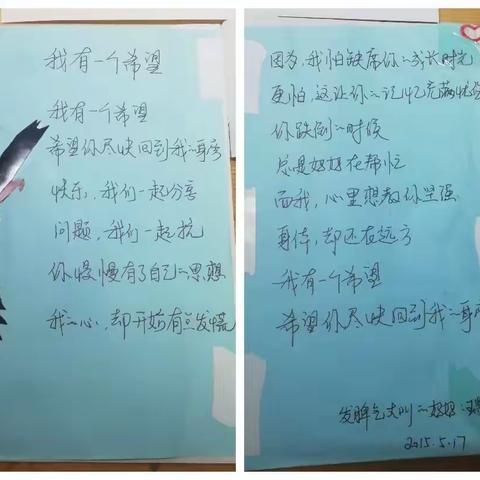 我有一个希望
我有一个希望
希望你尽快回到我的身旁
快乐,我们一起分享
问题,我们一起抗
你慢慢有了自己的思想
我的心,却开始有点发慌
因为,我怕缺席你的成长时光
更怕,这让你的记忆充满忧伤
你跌倒的时候
总是奶奶在帮忙
而我,心里想教你坚强
身体,却还在远方
我有一个希望
希望你尽快回到我的身旁
发脾气大叫的妈妈:
2015.5.17